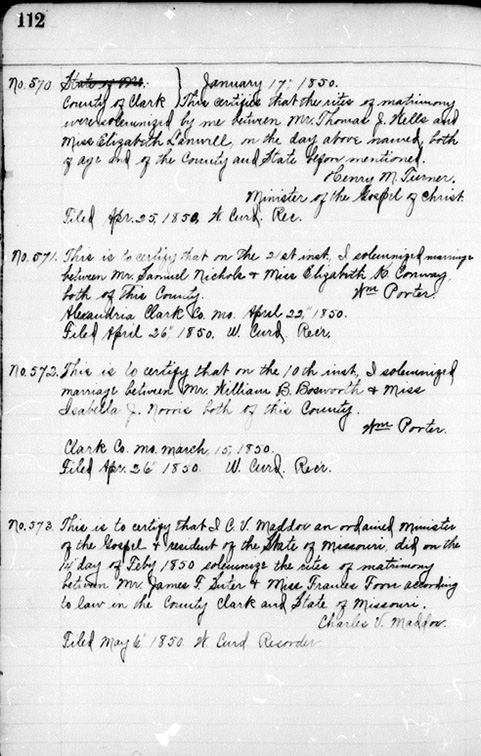 112
No. 570. State of Mo. } January 17" 1850.
County of Clark } This certifies that the rites of matrimony
were solemnized by me between Mr. Thomas J. Hells and
Miss Elizabeth Lanwill, on the day above named, both
of age and of the County and State before mentioned.
Henry M. Turner.
Minister of the Gospel of Christ.
Filed Apr. 25, 1850, W. Curd. Rec.
No. 571. This is to certify that on the 21st inst, I solemnized marriage
between Mr. Samuel Nichols & Miss Elizabeth K. Conway,
both of this County. Wm Porter.
Alexandria Clark Co. Mo. April 22," 1850.
Filed April 26" 1850. W. Curd, Recr.
No. 572. This is to certify that on the 10th inst, I solemnized
marriage between Mr. William B. Bosworth & Miss
Isabella J. Norris both of this County.
Wm Porter.
Clark Co. Mo. March, 15, 1850.
Filed Apr. 26" 1850. W. Curd. Recr.
No. 573. This is to certify that I C. V. Maddox an ordained Minister
of the Gospel & resident of the State of Missouri, did on the
14" day of Feby 1850 solemnize the rites of matrimony
between Mr. James F. Suter & Miss Frances Toon according
to law in the County Clark and State of Missouri.
Charles V. Maddox.
Filed May 6" 1850. W. Curd Recorder